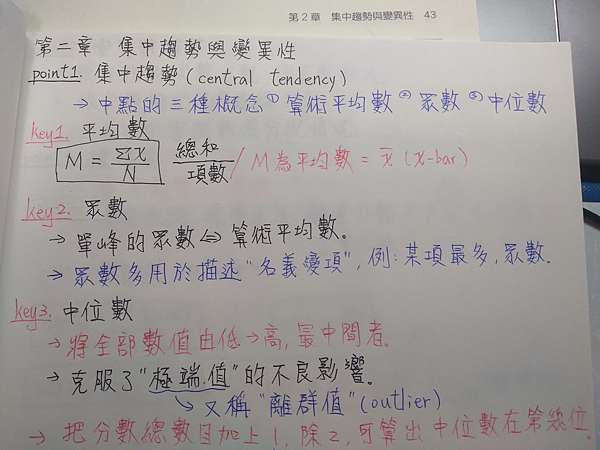 第2章 集中趨勢與變異性 43
第二章 集中趨勢與變異性
point1. 集中趨勢(central tendency)
→中點的三種概念①算術平均數②眾數③中位數
key1. 平均數
M = Σx/N 總和/項數 / M為平均數 = x̄ (x-bar)
key2. 眾數
→單峰的眾數⇔算術平均數。
→眾數多用於描述"名義變項", 例:某項最多,眾數。
key3. 中位數
→將全部數值由低→高,最中間者。
→克服了"極端值"的不良影響。
↳又稱"離群值"(outlier)
→把分數總數目加上1,除2,可算出中位數在第幾位。